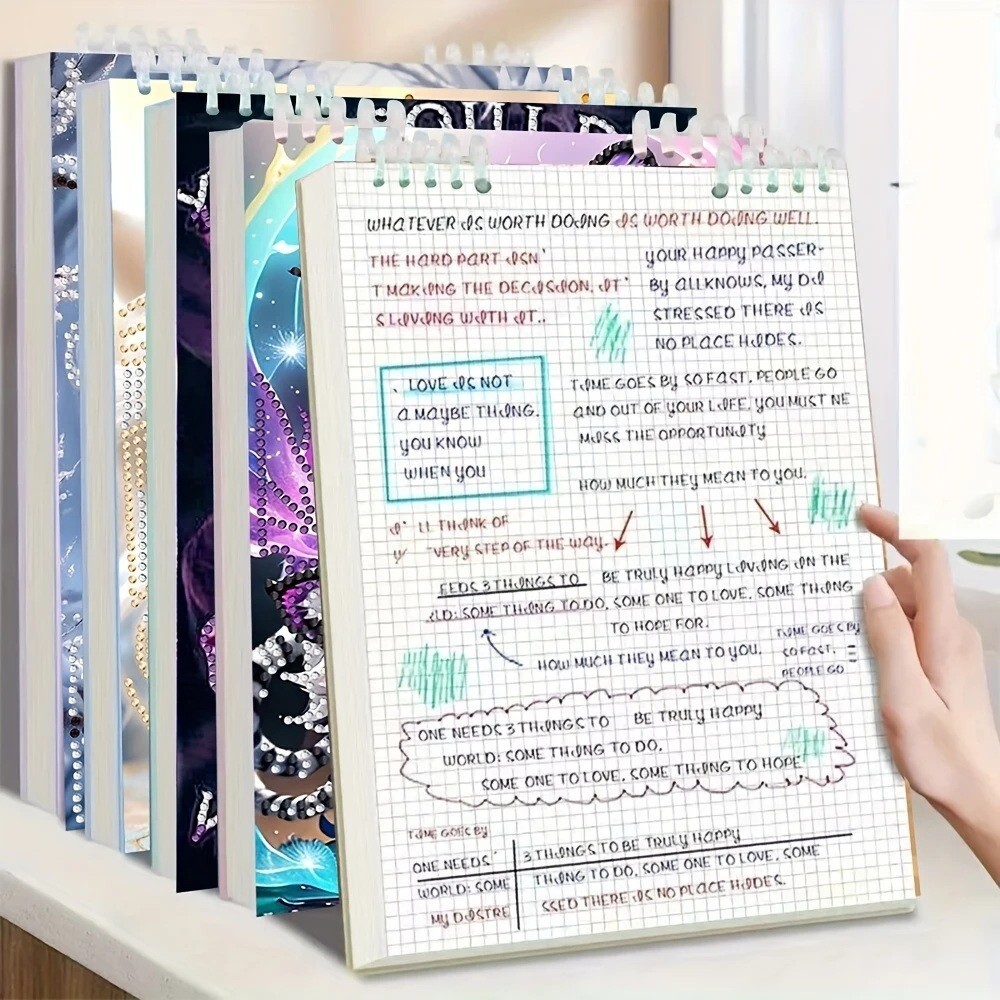 OULD
WHATEVER IS WORTH DOING IS WORTH DOING WELL.
THE HARD PART ISN'
T MAKING THE DECISION, IT'
S LIVING WITH IT..
YOUR HAPPY PASSER-
BY ALLKNOWS, MY DI
STRESSED THERE IS
NO PLACE HIDES.
. LOVE IS NOT
A MAYBE THING.
YOU KNOW
WHEN YOU
TIME GOES BY SO FAST, PEOPLE GO
AND OUT OF YOUR LIFE. YOU MUST NE
MISS THE OPPORTUNITY
HOW MUCH THEY MEAN TO YOU.
I' LL THINK OF
VERY STEP OF THE WAY.
EEDS 3 THINGS TO BE TRULY HAPPY LIVING IN THE
LD: SOME THING TO DO, SOME ONE TO LOVE, SOME THING
TO HOPE FOR.
HOW MUCH THEY MEAN TO YOU.
TIME GOES BY
SO FAST,
PEOPLE GO
ONE NEEDS 3 THINGS TO BE TRULY HAPPY
WORLD: SOME THING TO DO,
SOME ONE TO LOVE, SOME THING TO HOPE
TIME GOES BY
ONE NEEDS' 3 THINGS TO BE TRULY HAPPY
WORLD: SOME THING TO DO, SOME ONE TO LOVE, SOME
MY DISTRE SSED THERE IS NO PLACE HIDES.